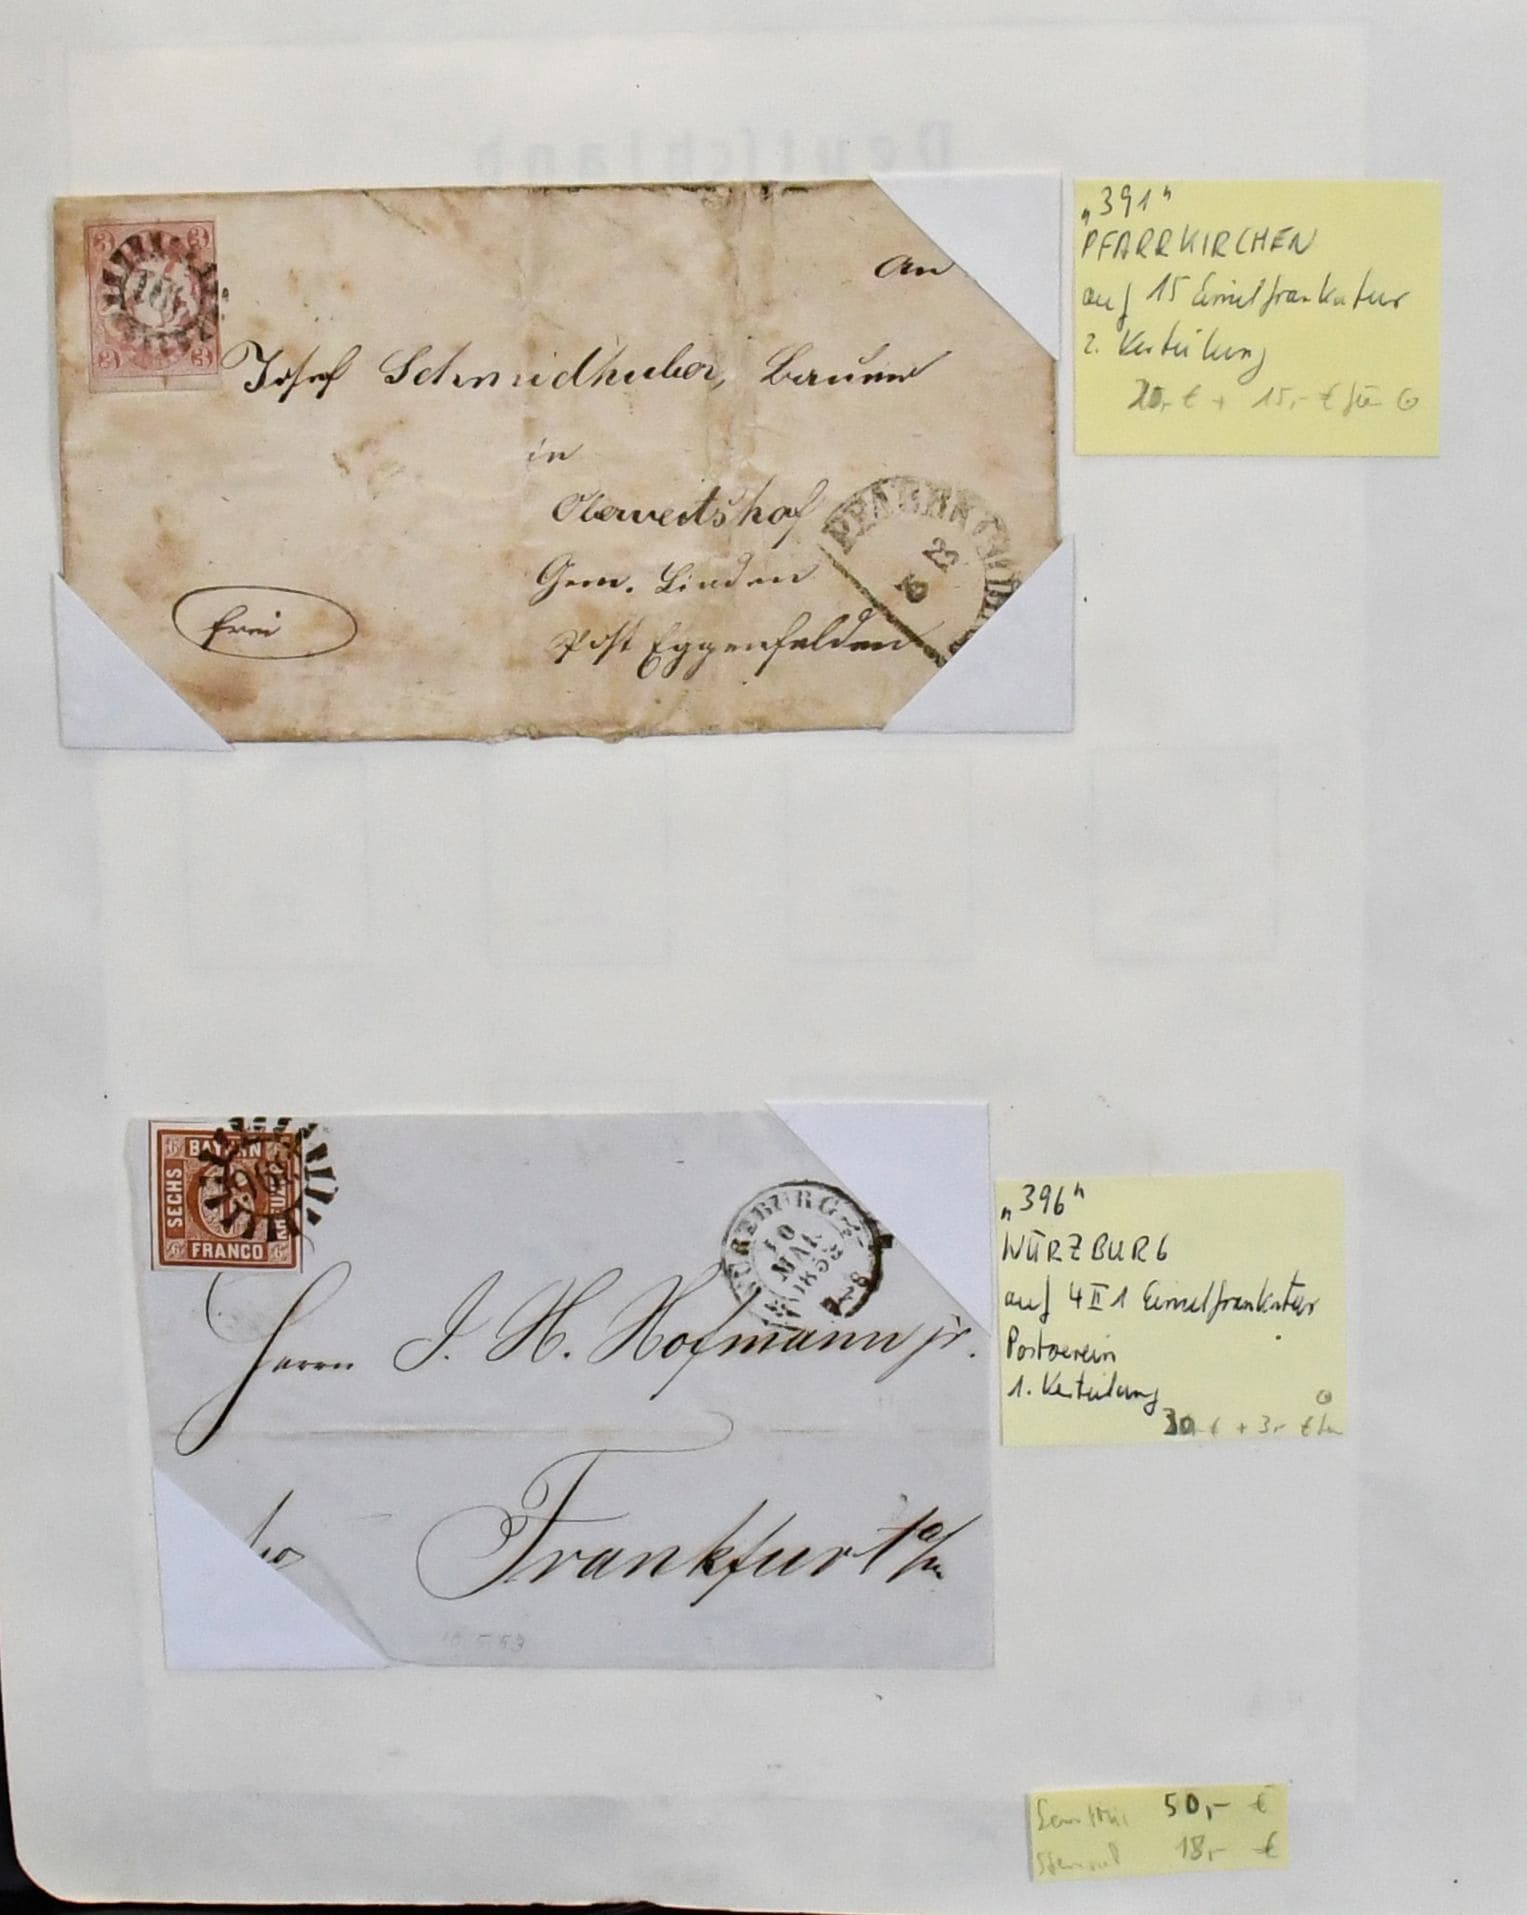 Deutschland
3 3
3 3
An
Josef Schmidhuber, Bauer
in
Oberveitshof
Gem. Linden
Post Eggenfelden
frei
23
"391"
PFARRKIRCHEN
auf 15 Einzelfrankatur
2. Verteilung
20,- € + 15,- € für
6 BAYERN
SECHS
6 FRANCO
396
WÜRZBURG
10
MAI
Herrn J. H. Hofmann jr.
Frankfurt a/m
10.5.53
"396"
WÜRZBURG
auf 4 II 1 Einzelfrankatur
Postverein
1. Verteilung
30,- € + 3,- € für
50,- €
Stempel 18,- €